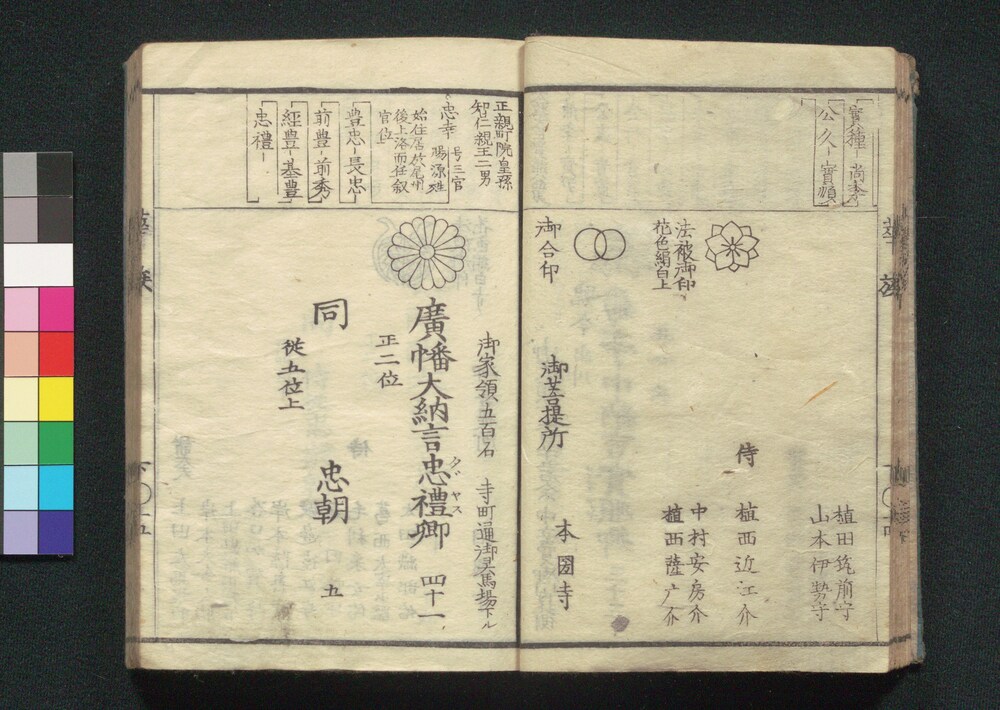 實種－尚季
公久－實順
植田筑前守
山本伊勢守
侍
植西近江介
中村安房介
植西薩广介
法被御印
花色絹白上
御菩提所
本圀寺
御合印
正親町院皇孫
智仁親王二男
忠幸
号三宮
賜源姓
始住居於尾州
後上洛而任叙
官位
豊忠－長忠
前豊－前秀
經豊－基豊
忠禮－
御家領五百石
寺町通御具馬場下ル
廣幡大納言忠禮卿
タヾヤス
四十一
正二位
同
忠朝
九
従五位上
華族